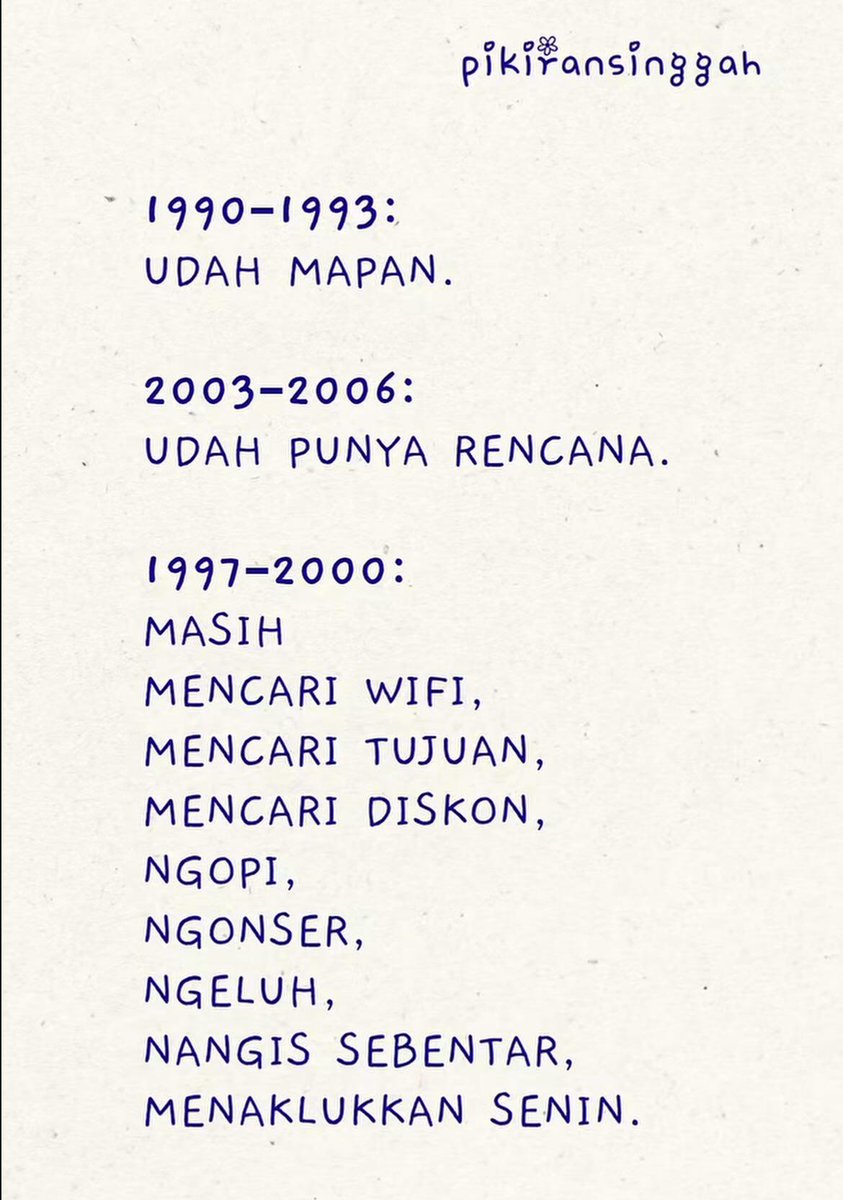 pikiransinggah
1990-1993:
UDAH MAPAN.
2003-2006:
UDAH PUNYA RENCANA.
1997-2000:
MASIH
MENCARI WIFI,
MENCARI TUJUAN,
MENCARI DISKON,
NGOPI,
NGONSER,
NGELUH,
NANGIS SEBENTAR,
MENAKLUKKAN SENIN.